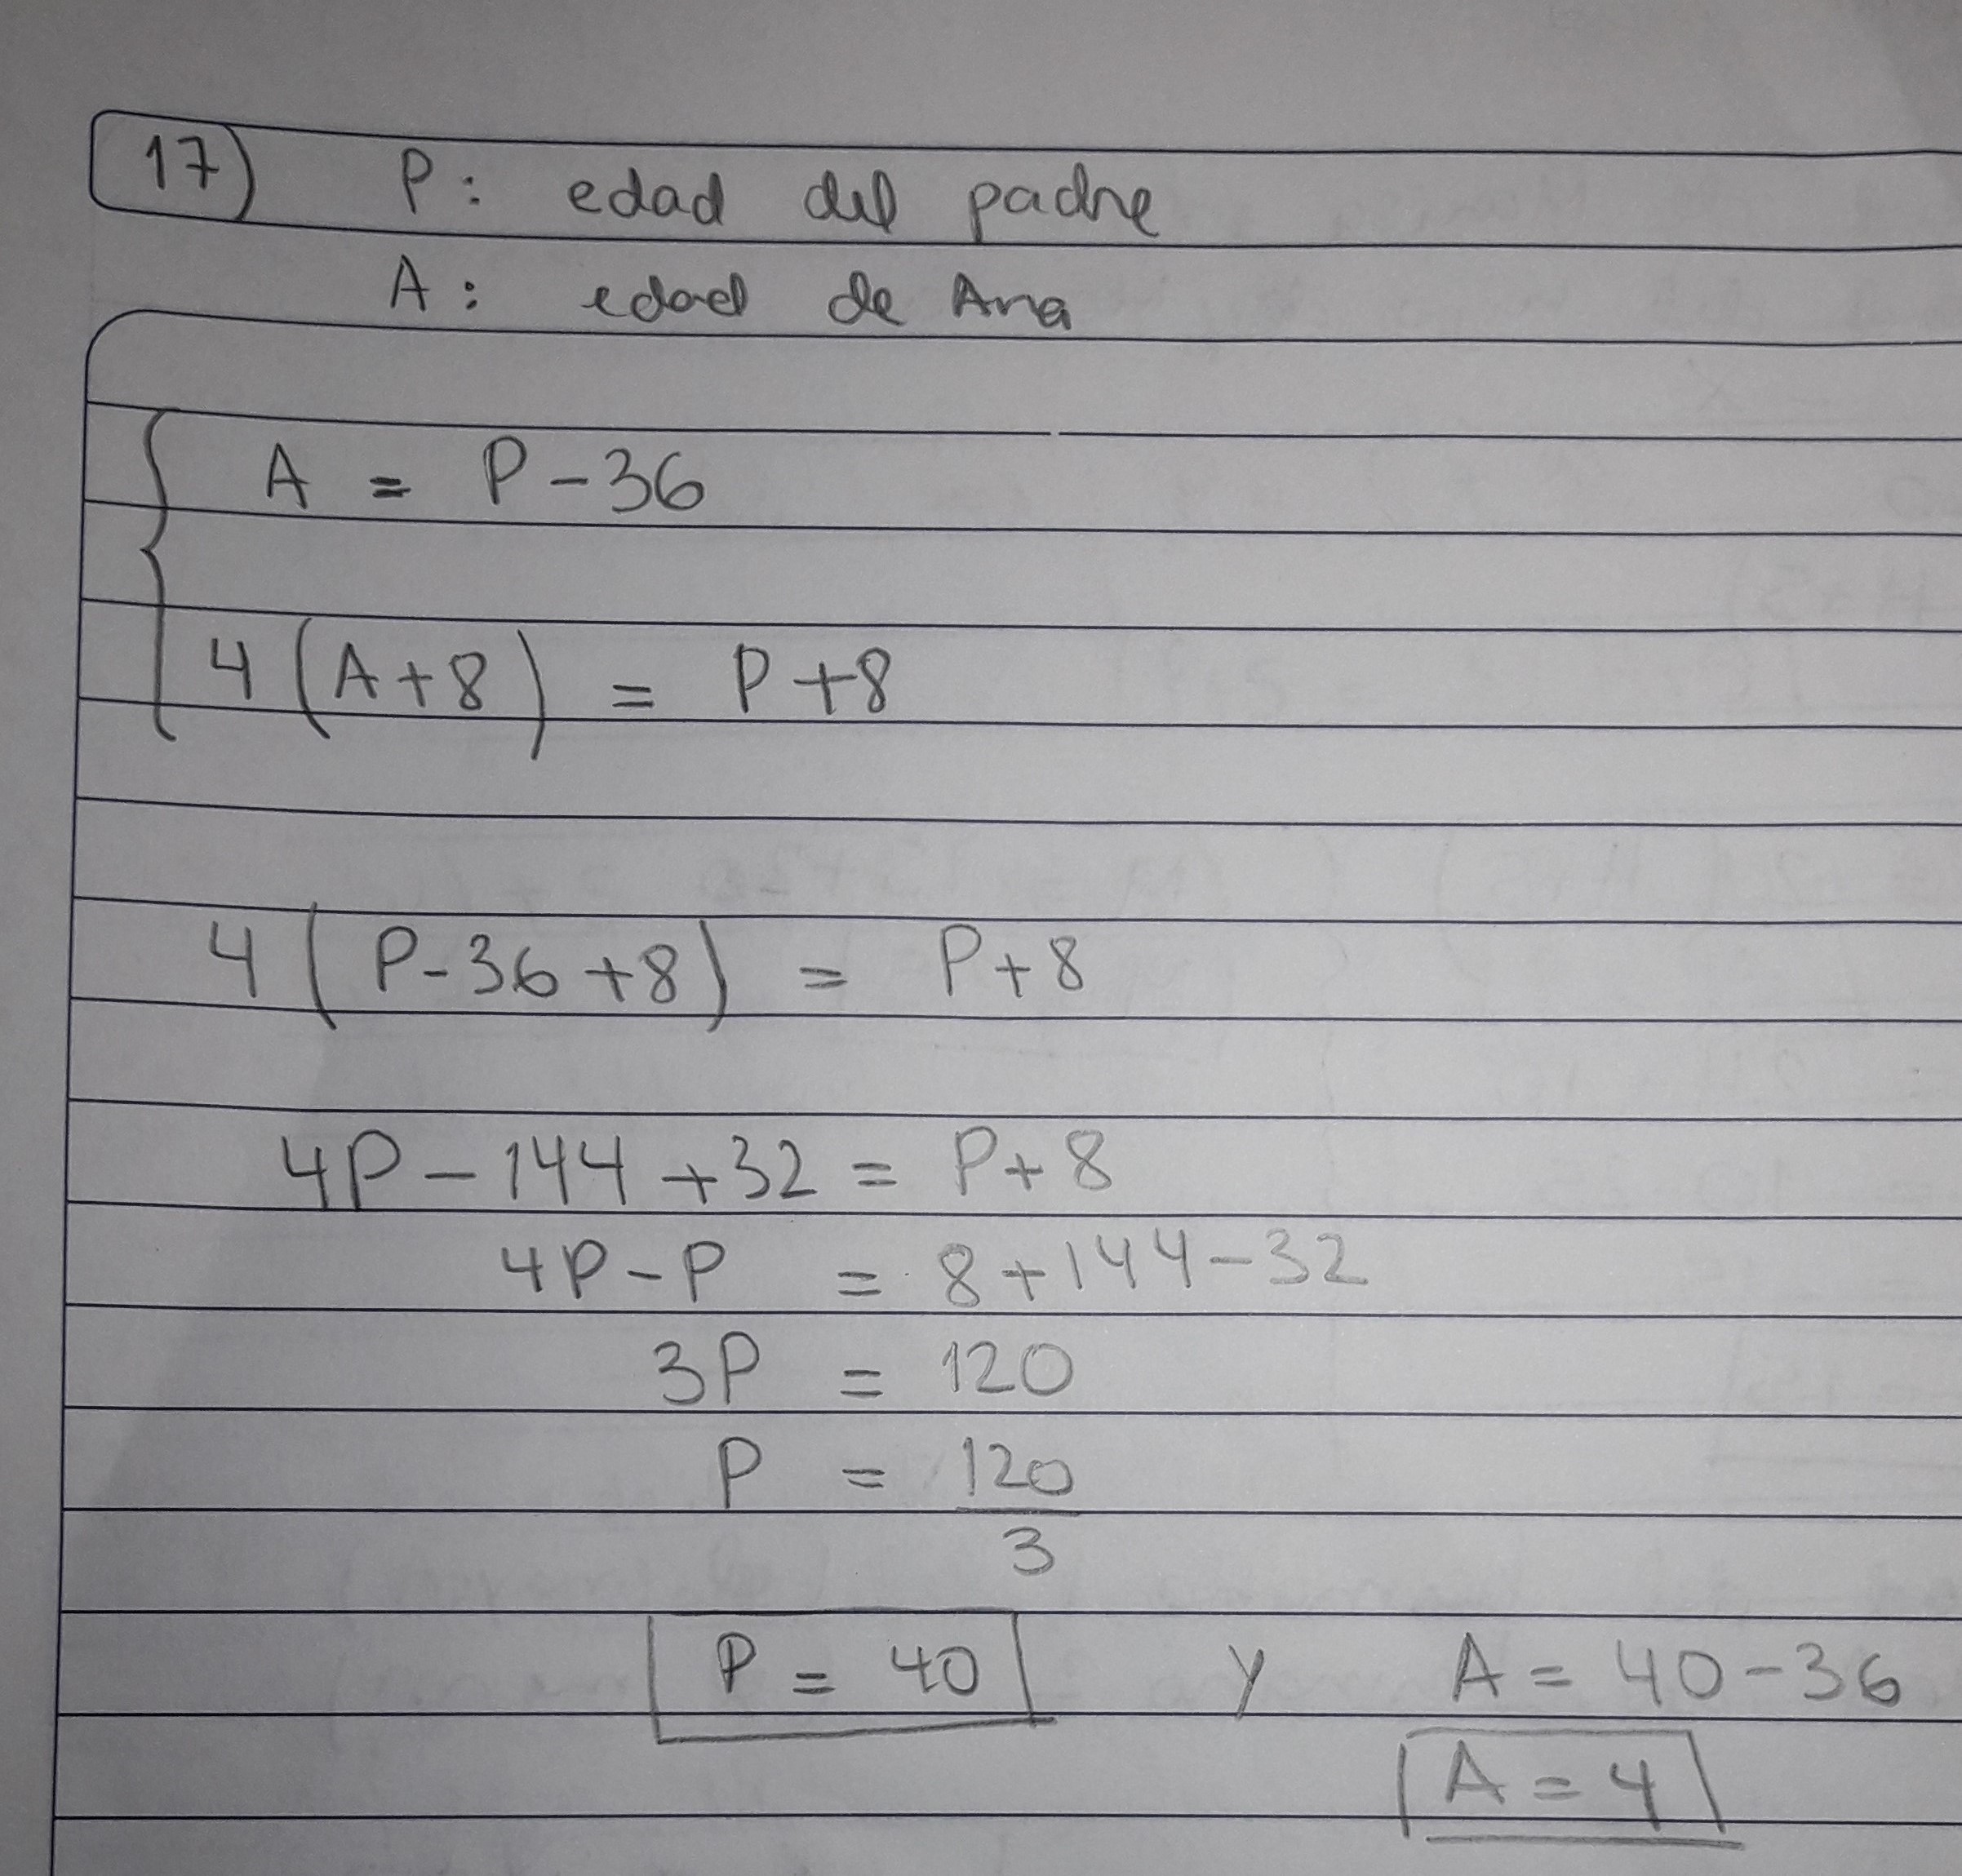 17) P: edad del padre
A: edad de Ana
A = P - 36
4 (A+8) = P+8
4 (P-36+8) = P+8
4P - 144 + 32 = P+8
4P - P = 8+144-32
3P = 120
P = 120
3
P = 40 y A = 40-36
A = 4